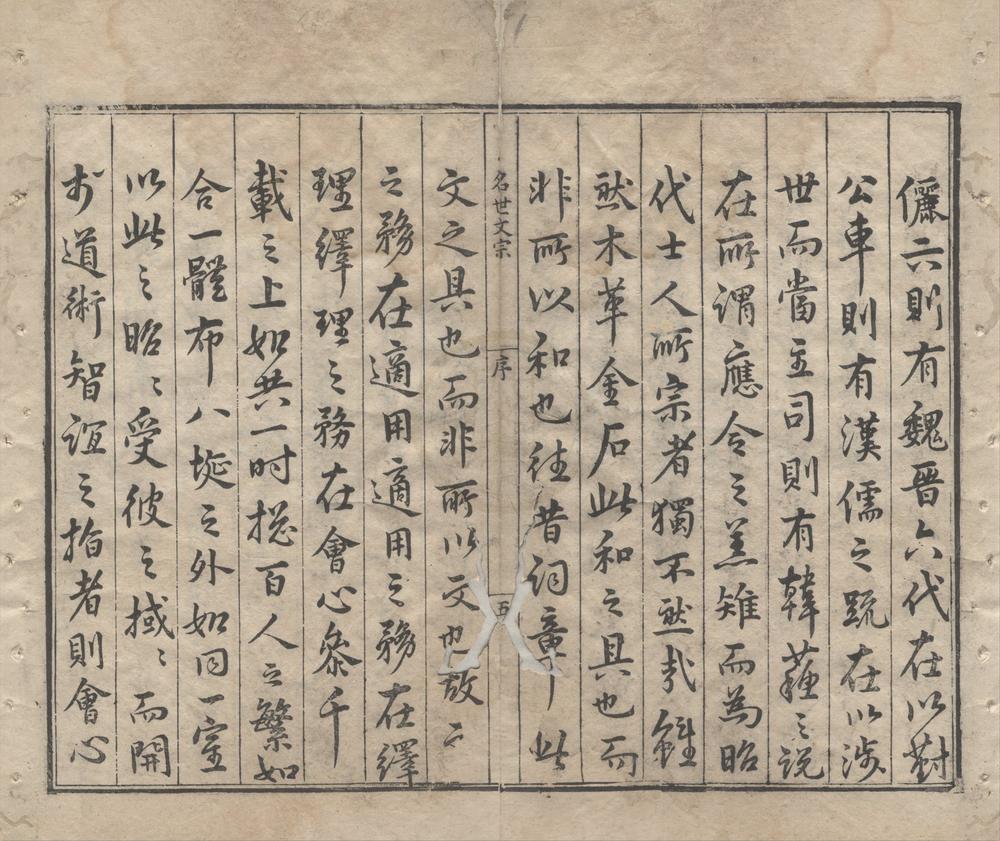 儷六則有魏晋六代在以對
公車則有漢儒之䟽在以涉
世而當主司則有韓蘓之説
在所謂應令之羔雉而為昭
代士人所宗者獨不然㢤雖
然木革金石此和之具也而
非所以和也往昔词章此
名世文宗
序
五
文之具也而非所以文也故文
之務在適用適用之務在繹
理繹理之務在會心叅千
載之上如共一时揔百人之繁如
合一體布八埏之外如同一室
以此之昭〻受彼之掝〻而開
於道術智誼之指者則會心